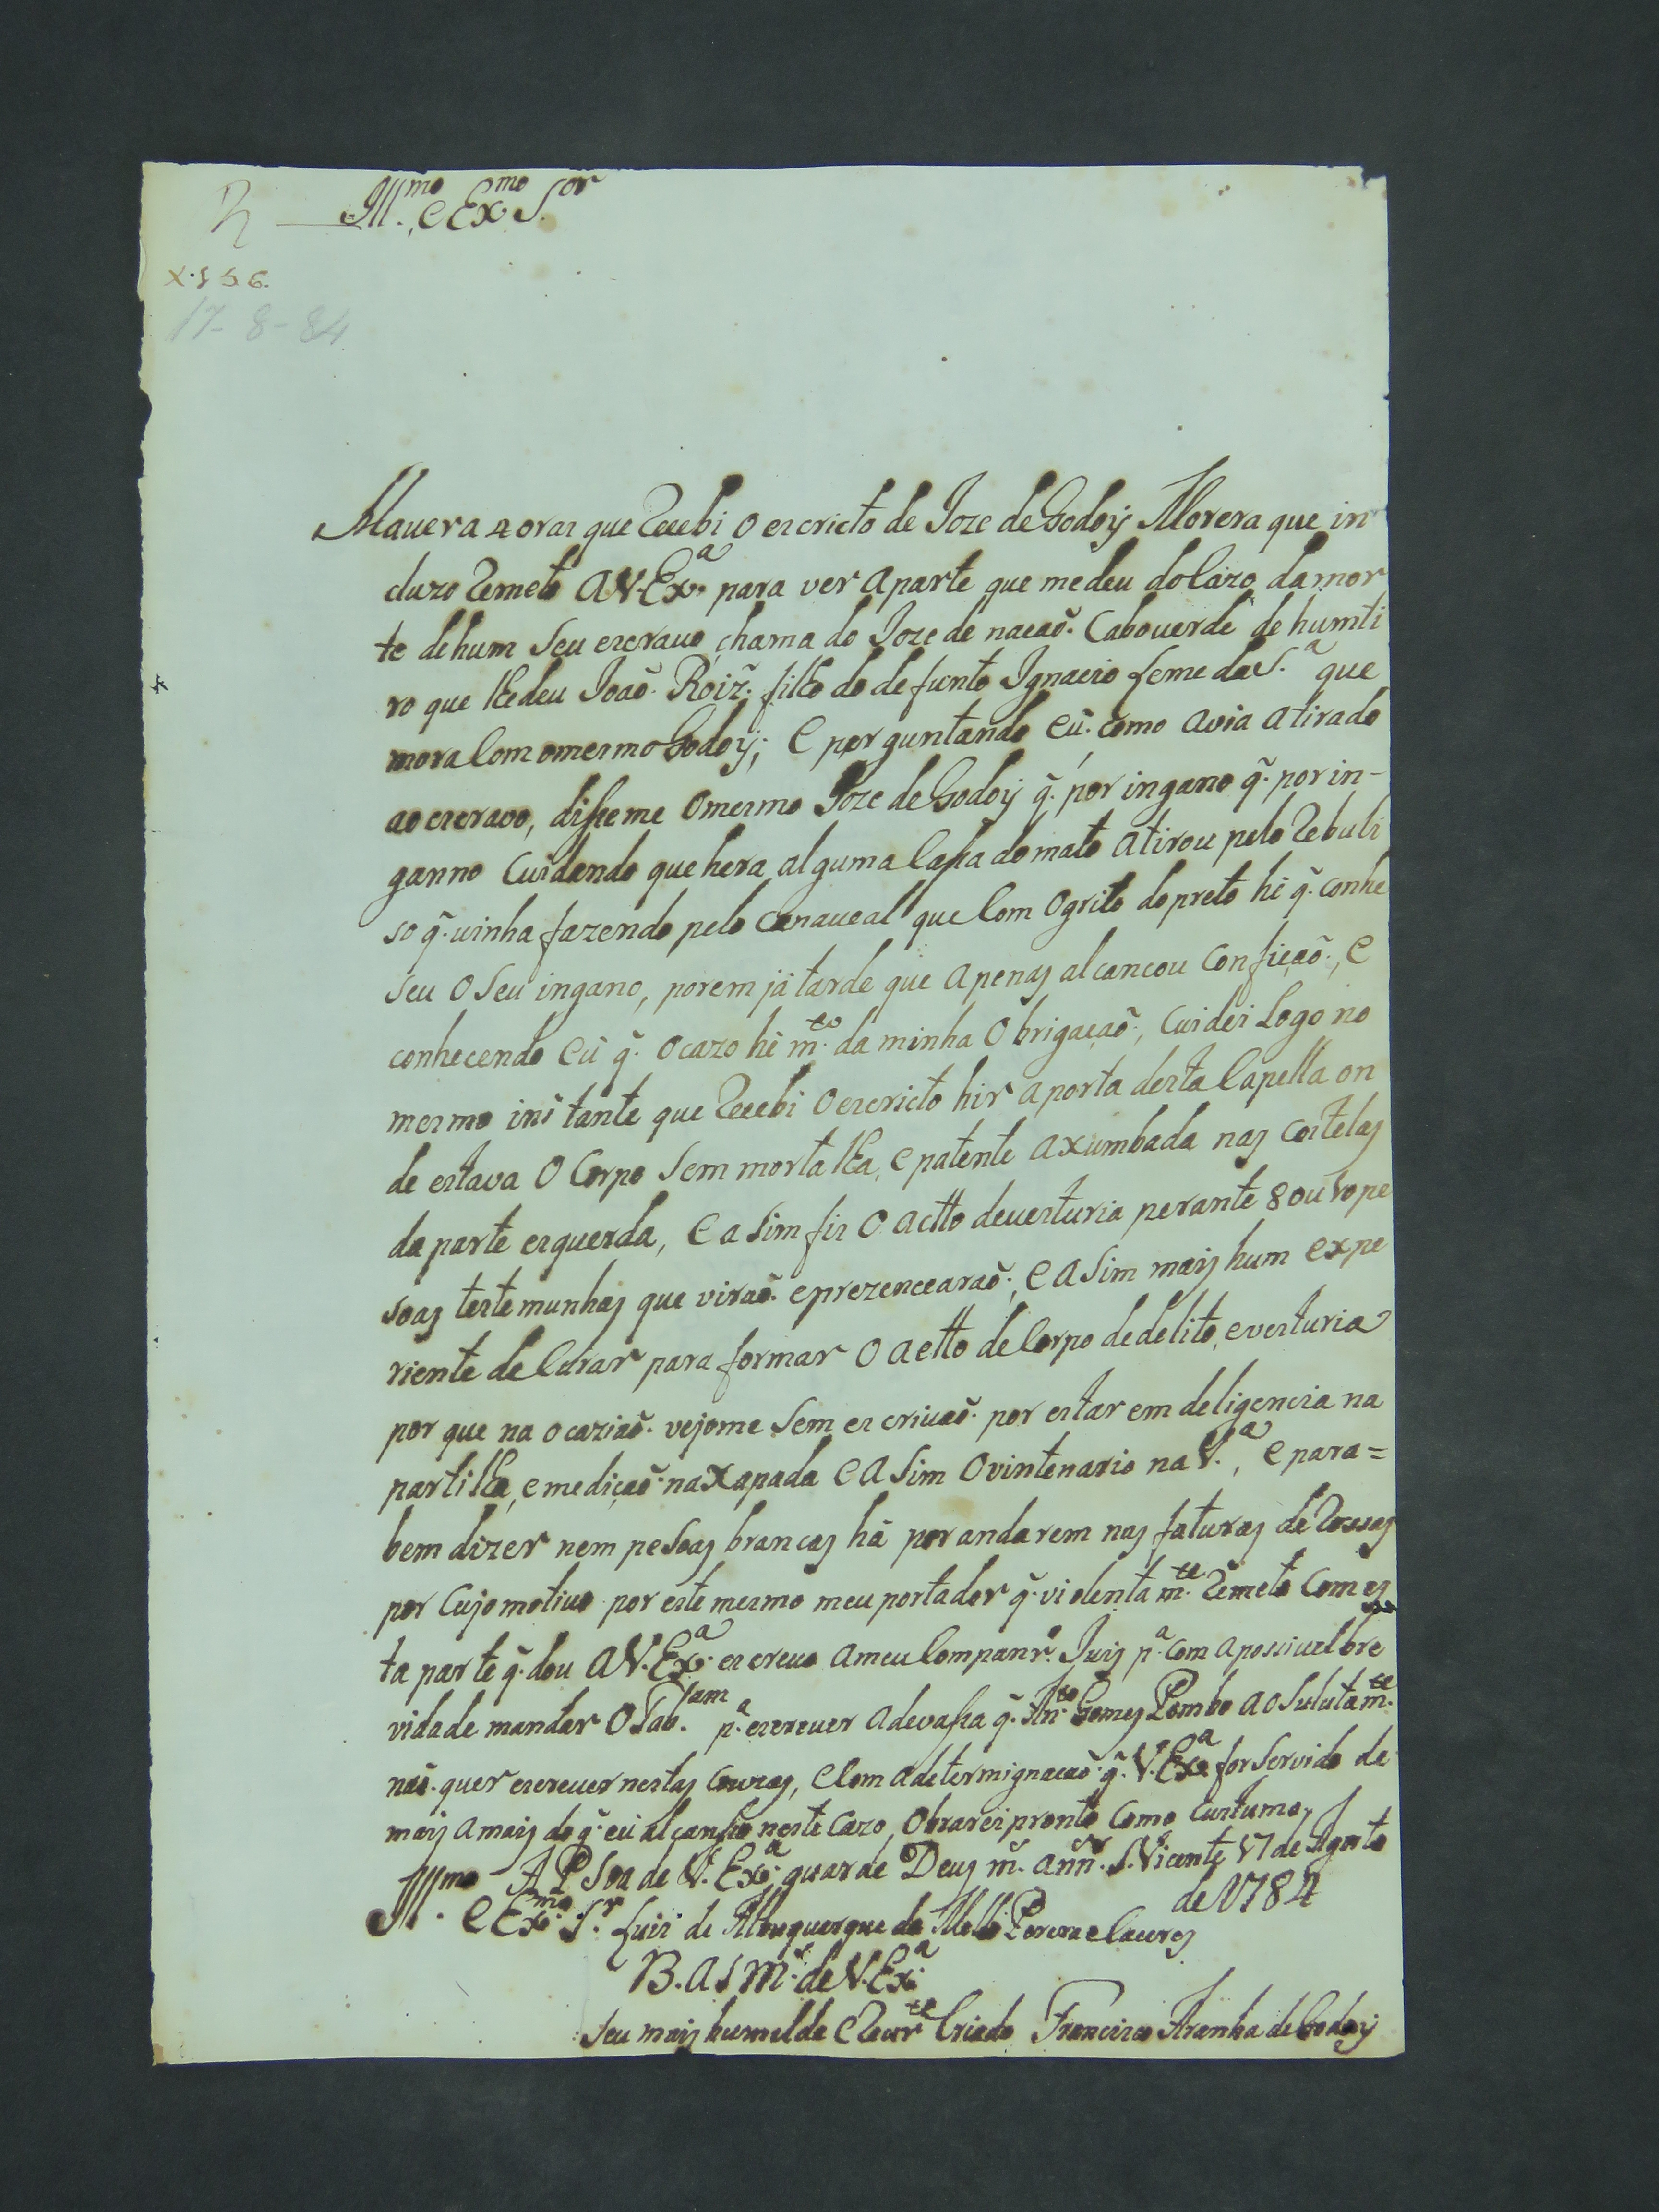 2 Ill.mo e Ex.mo S.or
X.556.
17-8-84
Havera 4 oras que Recebi o escricto de Joze de Godoÿ Morera que in
cluzo Remeto a V. Ex.a para ver a parte que medeu do Cazo da mor
te de hum seu escravo chama do Joze de nacaõ. Cabouerde de humti
ro que lhe deu Joaõ. Roiz̃. filho do defunto Ignacio Leme da S.a que
mora Com omesmo Godoÿ; e perguntando eú. como avia atirado
ao escravo, disseme o mesmo Joze de Godoÿ q̃. por ingano q̃. por in-
ganno Cuidando que hera alguma Cassa do mato atirou pelo Rebuli
so q̃. uinha fazendo pelo Canaueal que Com o grito do preto hé q̃. conhe
seu o seu ingano, porem já tarde que apenas alcancou Conficaõ., e
conhecendo eú q̃. o cazo hé m.to da minha Obrigacaõ., Cuidei Logo no
mesmo ins tante que Recebi o escricto hir a porta desta Capella on
de estava o Corpo sem morta lha, e patente a xumbada nas costelas
da parte esquerda, e a sim fis o actto deuesturia perante 8 ou 10 pe
soas testemunhas que viraõ. e prezencearaõ., e a sim mais hum expe
riente de Curar para formar o actto de Corpo dedelito, e vesturia
por que na ocaziaõ. vejome sem escriuaõ. por estar em deligencia na
partilha, e mediçaõ. na Xapada e a sim o vintenario na V.a, e para=
bem dizer nem pesoas brancas há por andarem nas faturas de Rossas
por Cujo motiuo por este mesmo meu portador q̃. violenta m.te Remeto Com es
ta parte q̃. dou a V. Ex.a escreuo a meu Companr.o Juis p.a com a possiuel bre
vidade mandar o Tab.am p.a escreuer a devassa q̃. An.to Gomes Pombo aosulutam.te
naõ. quer escreuer nestas Couzas, e Com a determignacaõ. q̃. V. Ex.a for servido de
mais a mais do q̃. eú alcansso neste Cazo, Obrarei pronto Como Custumo,
A P Soa de V. Ex.a guarde Deus m.s ann.s S. Vicente 17 de Agosto
de 1784
Ill.mo e Ex.mo S.r Luis de Albuquerque de Mello Perera e Caceres
B. as M.s de V. Ex.a
Seu mais humelde e Reur.te Criado Francisco Aranha de Godoÿ